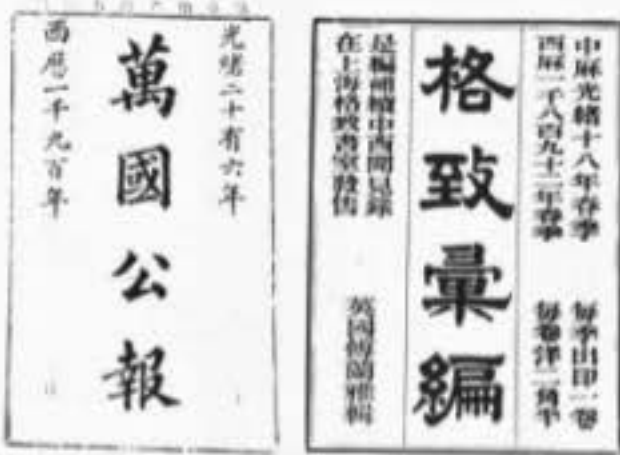 光緒二十有六年
萬國公報
西曆一千九百年
中曆光緒十八年春季 每季出印一卷
西曆一千八百九十二年春季 每卷洋二角半
格致彙編
是編補續中西聞見錄
在上海格致書室發售
英國傅蘭雅輯